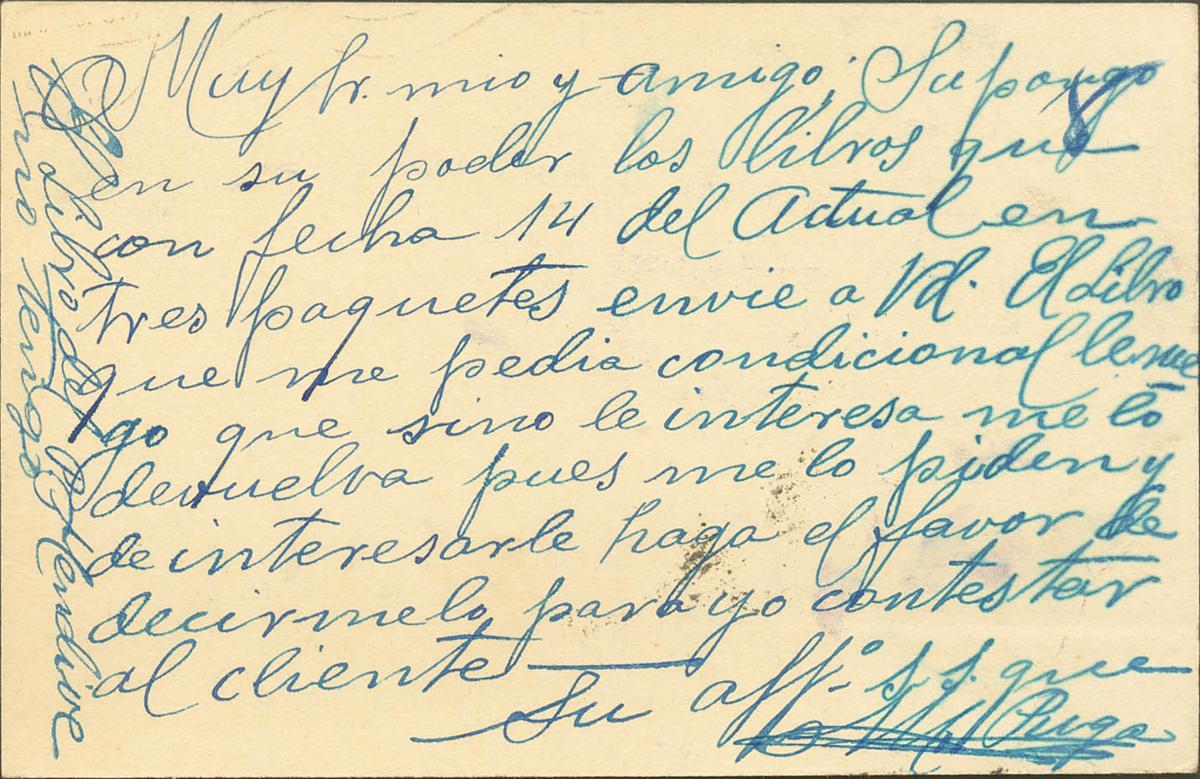 Muy Sr. mio y amigo; Supongo
en su poder los libros que
con fecha 14 del Actual en
tres paquetes envie a Vd. El Libro
que me pedia condicional le rue
go que sino le interesa me lo
devuelva pues me lo piden y
de interesarle haga el favor de
decirmelo para yo contestar
al cliente
Su affº. s. s. que
Puga
El Libro de P. Mendive
no tengo